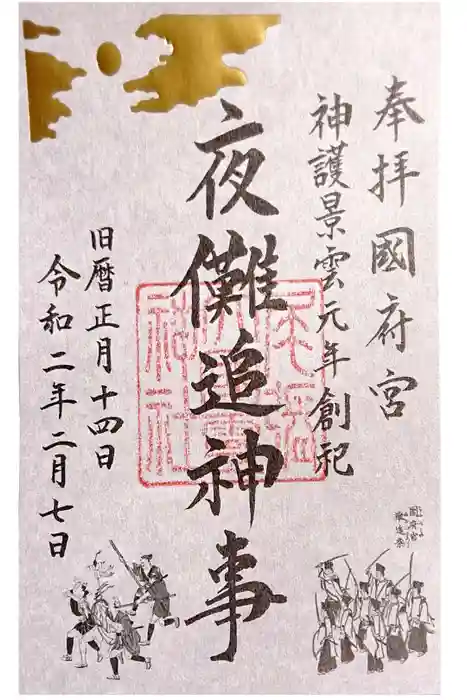 奉拝 國府宮
神護景雲元年創祀
夜儺追神事
旧暦正月十四日
令和二年二月七日
国府宮
儺追祭